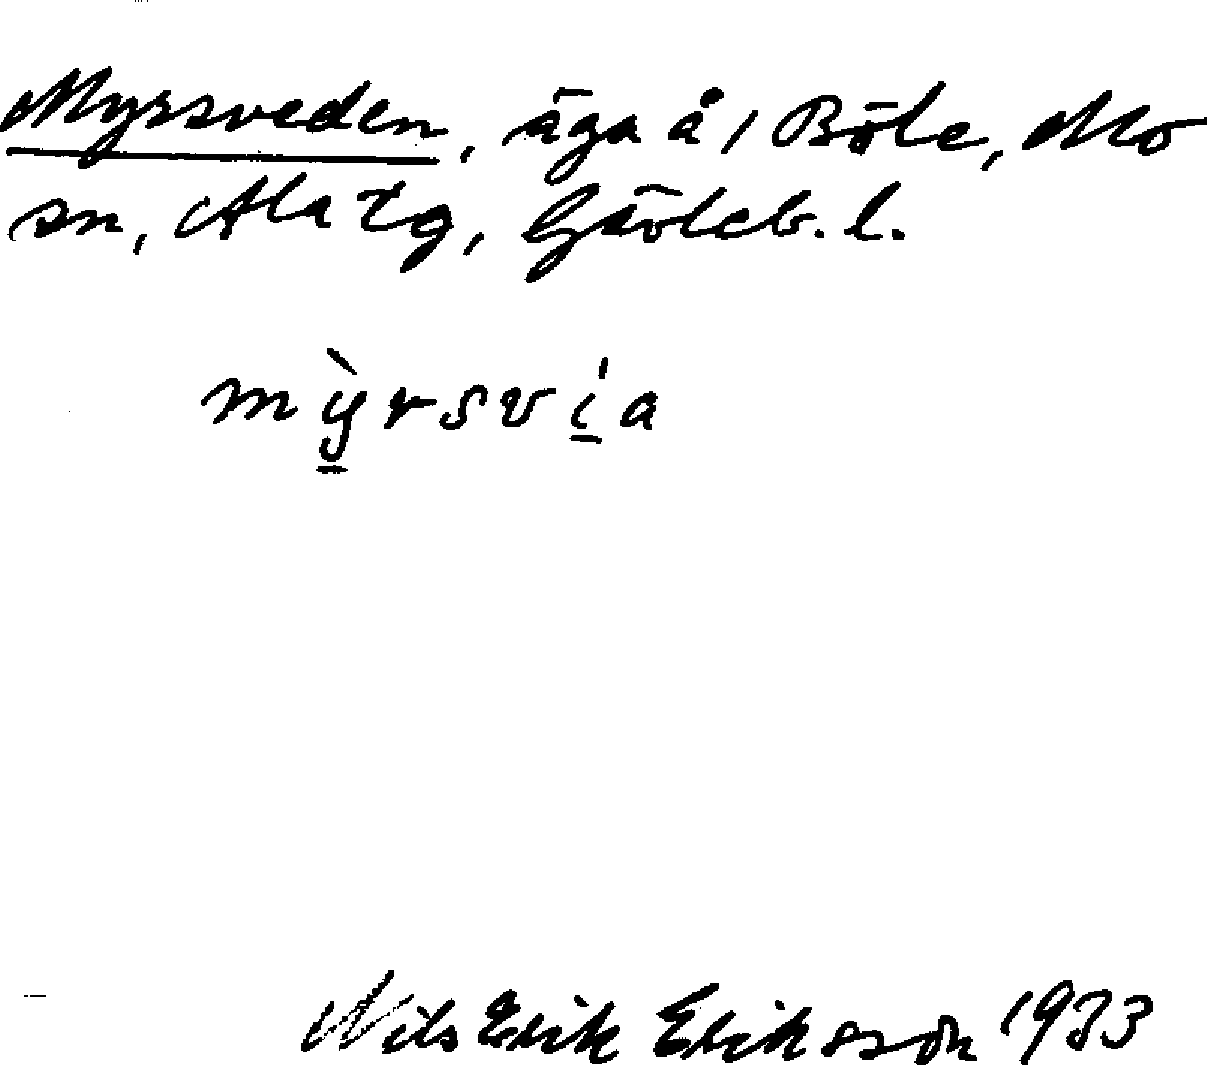 Myrsveden, äga å 1 Böle, Mo
sn, Ala tg, Gävleb. l.
mỳrsvía
Nils Erik Eriksson 1933